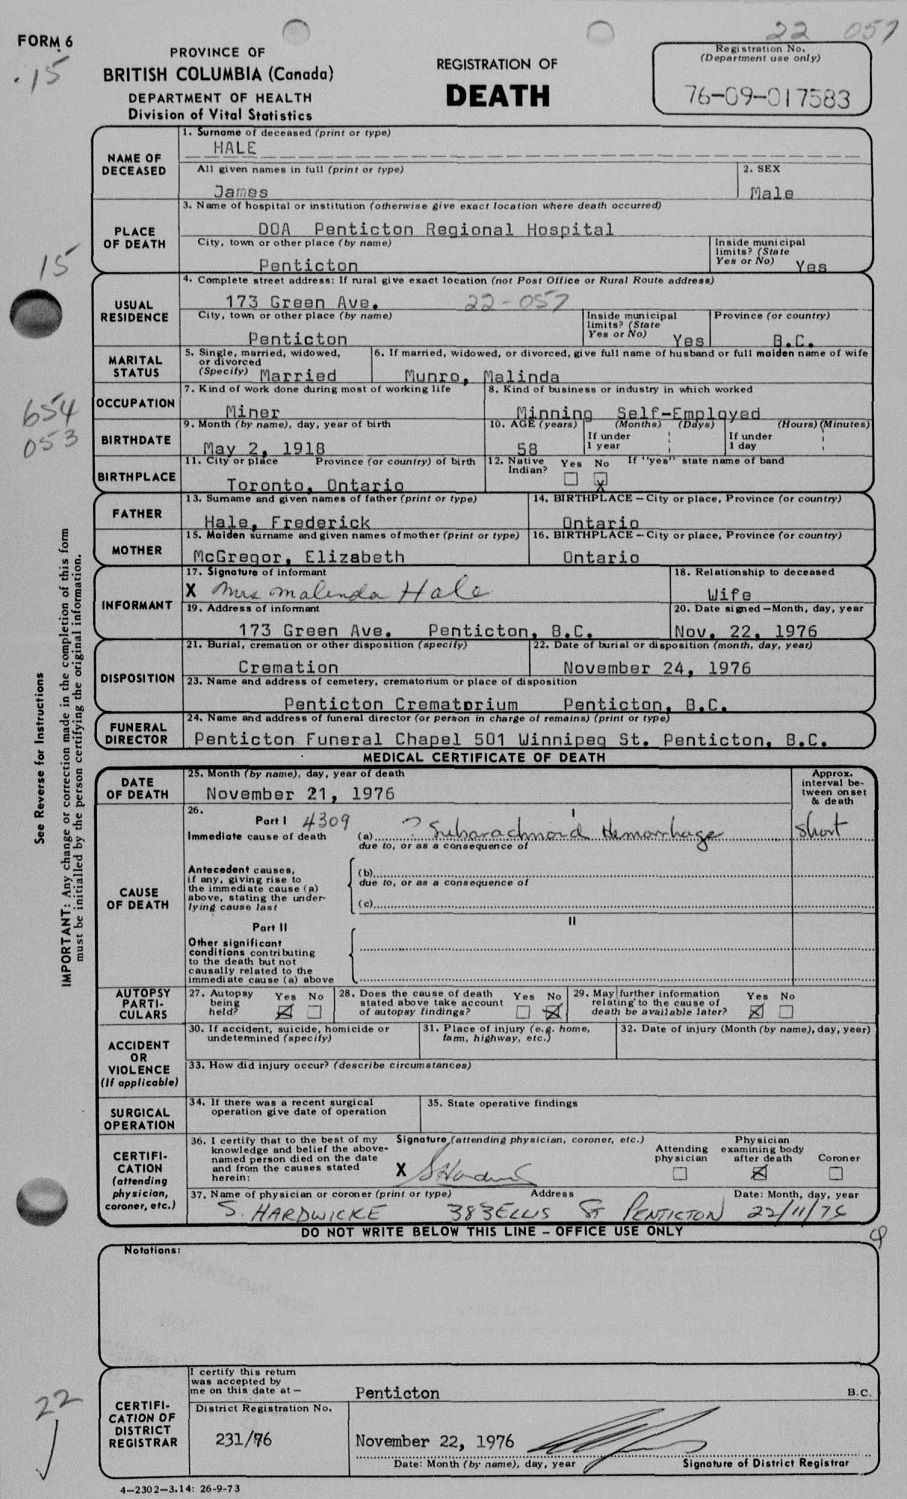 22 057
FORM 6
.15
PROVINCE OF
BRITISH COLUMBIA (Canada)
DEPARTMENT OF HEALTH
Division of Vital Statistics
REGISTRATION OF
DEATH
Registration No.
(Department use only)
76-09-017583
NAME OF DECEASED
1. Surname of deceased (print or type)
HALE
All given names in full (print or type)
James
2. SEX
Male
PLACE OF DEATH
3. Name of hospital or institution (otherwise give exact location where death occurred)
DOA Penticton Regional Hospital
City, town or other place (by name)
Penticton
Inside municipal limits? (State Yes or No) Yes
15
USUAL RESIDENCE
4. Complete street address: If rural give exact location (not Post Office or Rural Route address)
173 Green Ave. 22-057
City, town or other place (by name)
Penticton
Inside municipal limits? (State Yes or No) Yes
Province (or country)
B.C.
MARITAL STATUS
5. Single, married, widowed, or divorced (Specify) Married
6. If married, widowed, or divorced, give full name of husband or full maiden name of wife
Munro, Malinda
654
053
OCCUPATION
7. Kind of work done during most of working life
Miner
8. Kind of business or industry in which worked
Minning Self-Employed
BIRTHDATE
9. Month (by name), day, year of birth
May 2, 1918
10. AGE (years) (Months) (Days) (Hours) (Minutes)
58
If under 1 year
If under 1 day
BIRTHPLACE
11. City or place Province (or country) of birth
Toronto, Ontario
12. Native Indian? Yes No X If "yes" state name of band
FATHER
13. Surname and given names of father (print or type)
Hale, Frederick
14. BIRTHPLACE — City or place, Province (or country)
Ontario
MOTHER
15. Maiden surname and given names of mother (print or type)
McGregor, Elizabeth
16. BIRTHPLACE — City or place, Province (or country)
Ontario
INFORMANT
17. Signature of informant
X Mrs Malenda Hale
18. Relationship to deceased
Wife
19. Address of informant
173 Green Ave. Penticton, B.C.
20. Date signed — Month, day, year
Nov. 22, 1976
DISPOSITION
21. Burial, cremation or other disposition (specify)
Cremation
22. Date of burial or disposition (month, day, year)
November 24, 1976
23. Name and address of cemetery, crematorium or place of disposition
Penticton Crematorium Penticton, B.C.
FUNERAL DIRECTOR
24. Name and address of funeral director (or person in charge of remains) (print or type)
Penticton Funeral Chapel 501 Winnipeg St. Penticton, B.C.
See Reverse for Instructions
IMPORTANT: Any change or correction made in the completion of this form
must be initialled by the person certifying the original information.
MEDICAL CERTIFICATE OF DEATH
DATE OF DEATH
25. Month (by name), day, year of death
November 21, 1976
Approx. interval between onset & death
CAUSE OF DEATH
26.
Part I 4309
I
Immediate cause of death
(a) ? Subarachnoid Hemorrhage short
due to, or as a consequence of
Antecedent causes, if any, giving rise to the immediate cause (a) above, stating the underlying cause last
(b)
due to, or as a consequence of
(c)
Part II
II
Other significant conditions contributing to the death but not causally related to the immediate cause (a) above
AUTOPSY PARTICULARS
27. Autopsy being held? Yes X No
28. Does the cause of death stated above take account of autopsy findings? Yes No X
29. May further information relating to the cause of death be available later? Yes X No
ACCIDENT OR VIOLENCE (If applicable)
30. If accident, suicide, homicide or undetermined (specify)
31. Place of injury (e.g. home, farm, highway, etc.)
32. Date of injury (Month (by name), day, year)
33. How did injury occur? (describe circumstances)
SURGICAL OPERATION
34. If there was a recent surgical operation give date of operation
35. State operative findings
CERTIFICATION (attending physician, coroner, etc.)
36. I certify that to the best of my knowledge and belief the above-named person died on the date and from the causes stated herein:
Signature (attending physician, coroner, etc.)
X
Attending physician
Physician examining body after death X
Coroner
37. Name of physician or coroner (print or type) Address Date: Month, day, year
S. HARDWICKE 383 ELLIS St PENTICTON 22/11/76
DO NOT WRITE BELOW THIS LINE — OFFICE USE ONLY
Notations:
22
CERTIFICATION OF DISTRICT REGISTRAR
I certify this return was accepted by me on this date at —
Penticton B.C.
District Registration No.
231/76
November 22, 1976
Date: Month (by name), day, year
Signature of District Registrar
4—2302—3.14: 26-9-73